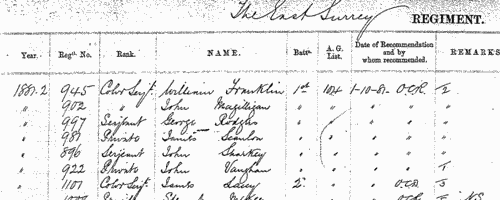 The East Surrey REGIMENT.
Year. Regtl. No. Rank. NAME. Batn. A. G. List. Date of Recommendation and by whom recommended. REMARKS
1881-2 945 Color Serjt. William Franklin 1st 104 1-10-81 O.C.R. 2
" 902 " John Magilligan " " " " "
" 997 Serjeant George Rodgers " " " " "
" 987 Private James Scanlon " " " " "
" 896 Serjeant John Sharkey " " " " "
" 922 Private John Vaughan " " " "
" 1107 Color Serjt. James Lacey 2. " " O.C.R.